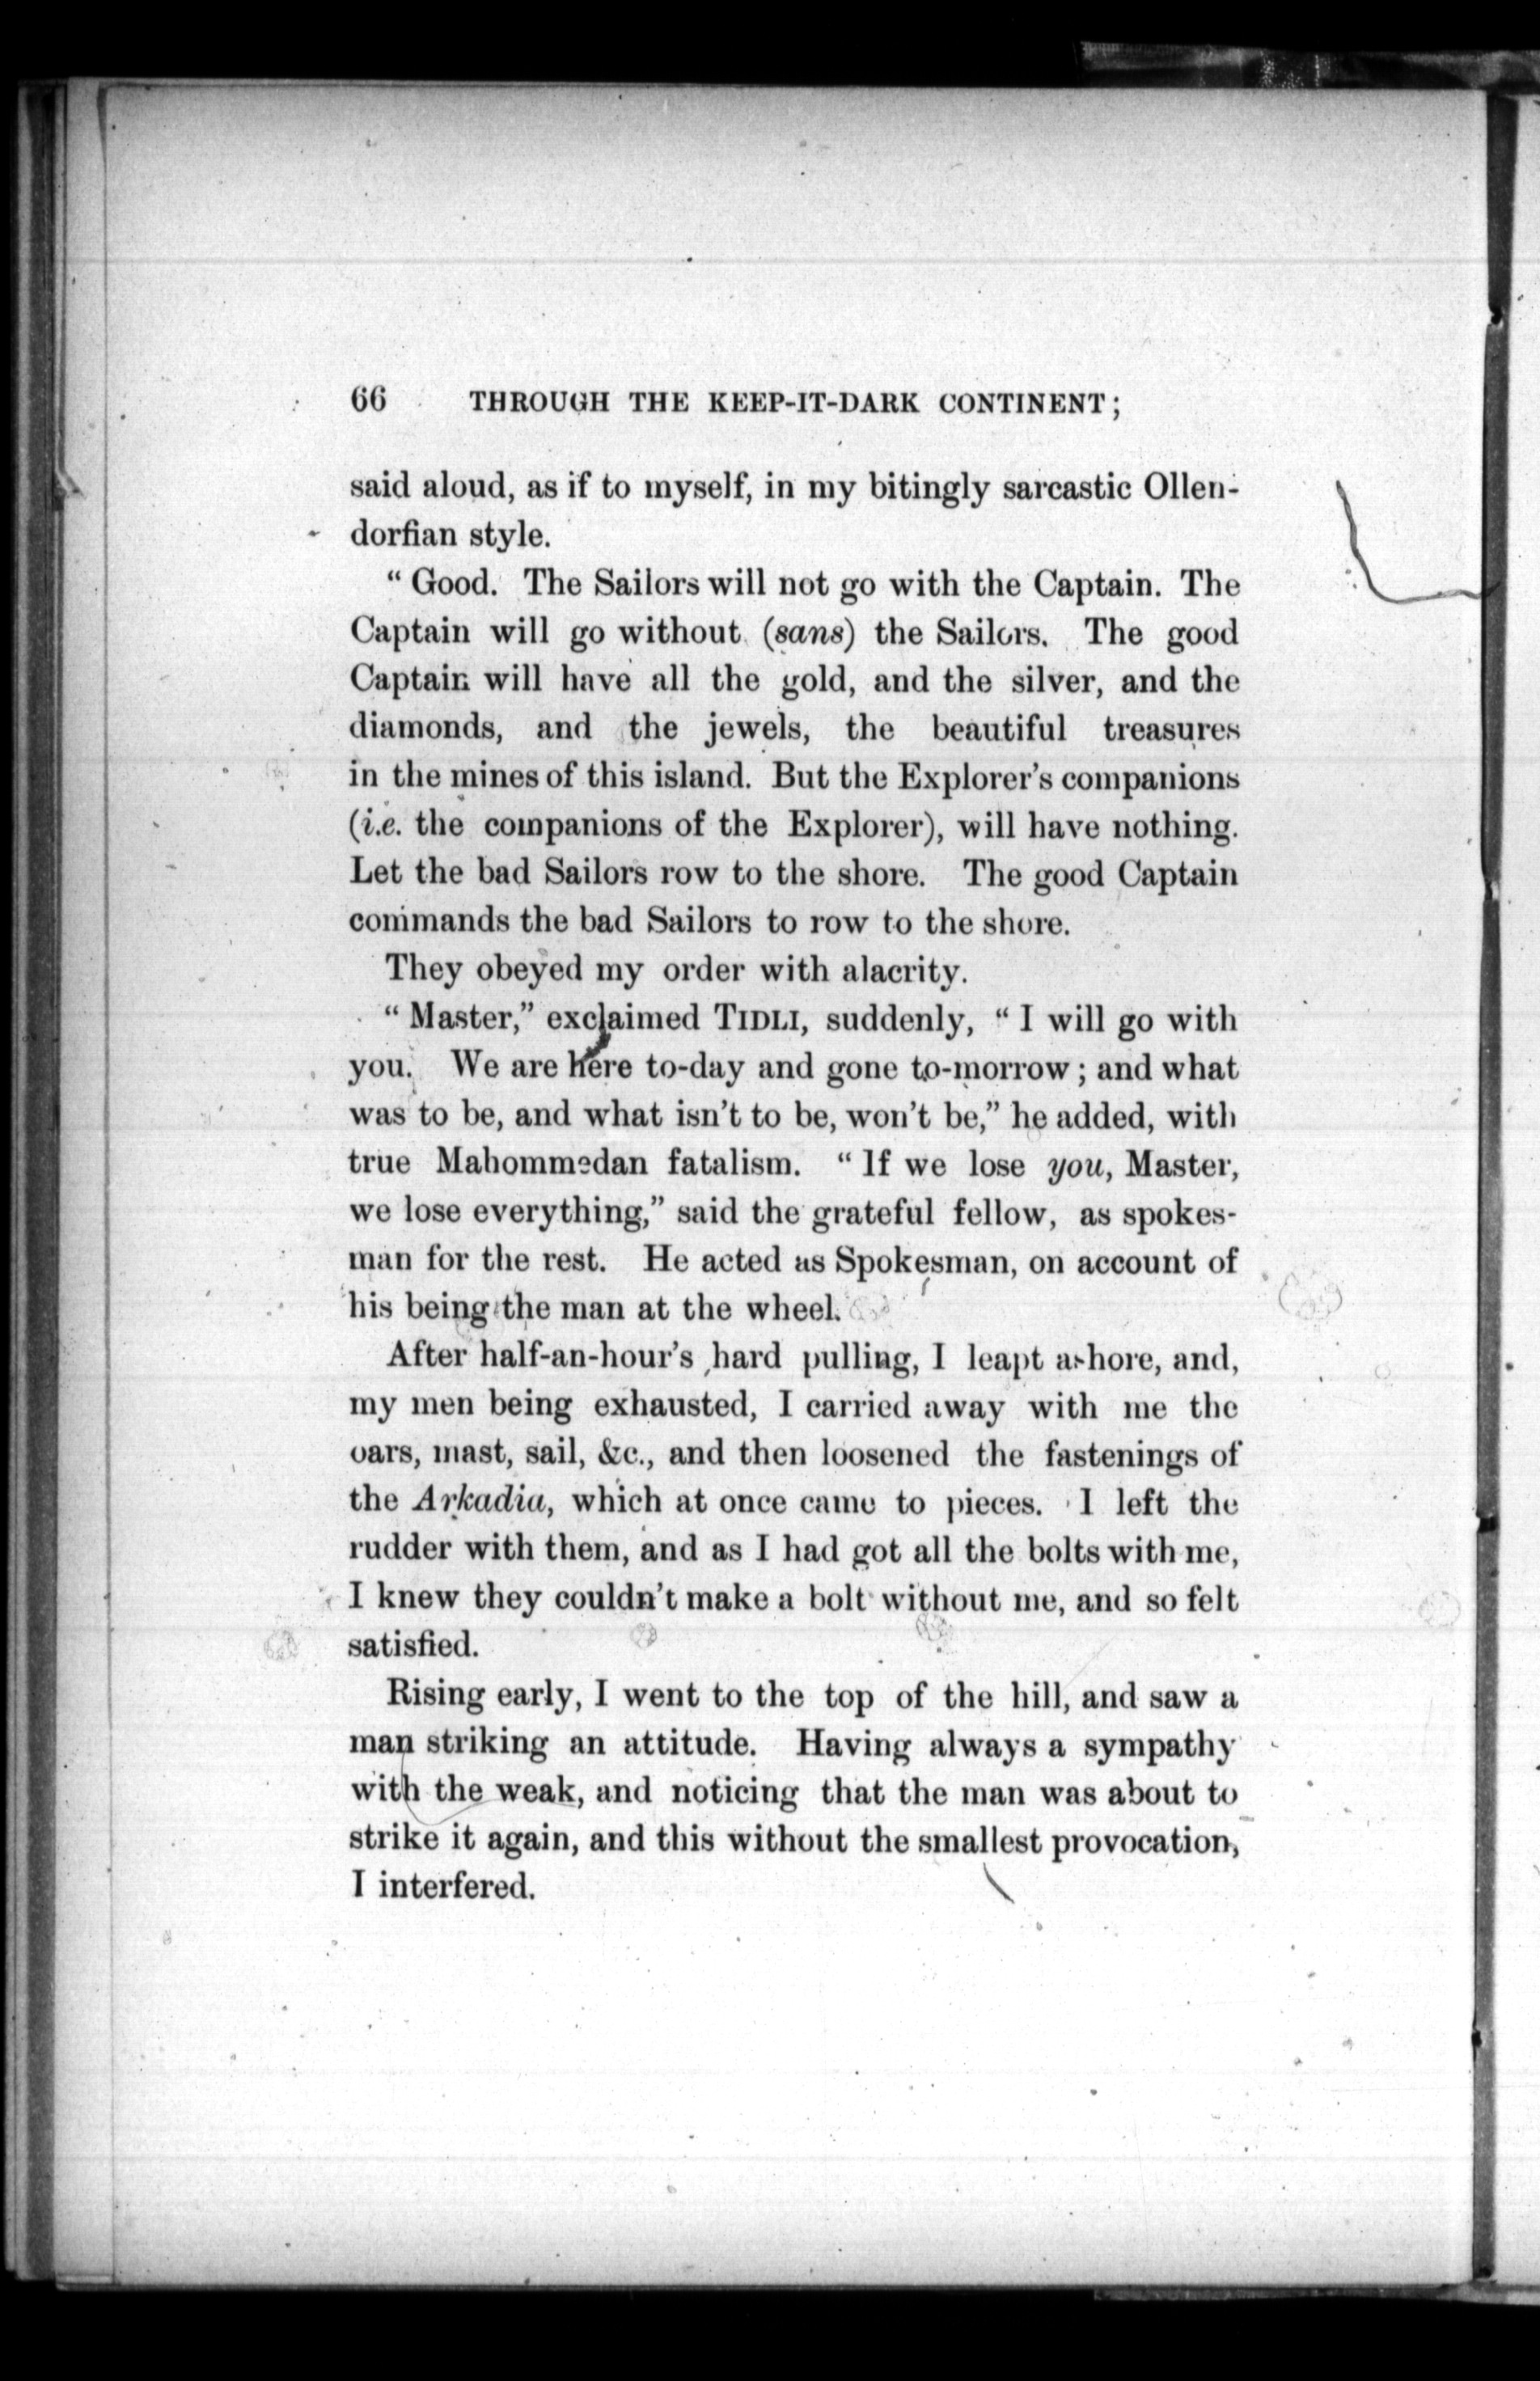 66 THROUGH THE KEEP-IT-DARK CONTINENT;
said aloud, as if to myself, in my bitingly sarcastic Ollen-
dorfian style.
“Good. The Sailors will not go with the Captain. The
Captain will go without (sans) the Sailors. The good
Captain will have all the gold, and the silver, and the
diamonds, and the jewels, the beautiful treasures
in the mines of this island. But the Explorer’s companions
(i.e. the companions of the Explorer), will have nothing.
Let the bad Sailors row to the shore. The good Captain
commands the bad Sailors to row to the shore.
They obeyed my order with alacrity.
“Master,” exclaimed TIDLI, suddenly, “I will go with
you. We are here to-day and gone to-morrow; and what
was to be, and what isn’t to be, won’t be,” he added, with
true Mahommedan fatalism. “If we lose you, Master,
we lose everything,” said the grateful fellow, as spokes-
man for the rest. He acted as Spokesman, on account of
his being the man at the wheel.
After half-an-hour’s hard pulling, I leapt ashore, and,
my men being exhausted, I carried away with me the
oars, mast, sail, &c., and then loosened the fastenings of
the Arkadia, which at once came to pieces. I left the
rudder with them, and as I had got all the bolts with me,
I knew they couldn’t make a bolt without me, and so felt
satisfied.
Rising early, I went to the top of the hill, and saw a
man striking an attitude. Having always a sympathy
with the weak, and noticing that the man was about to
strike it again, and this without the smallest provocation,
I interfered.